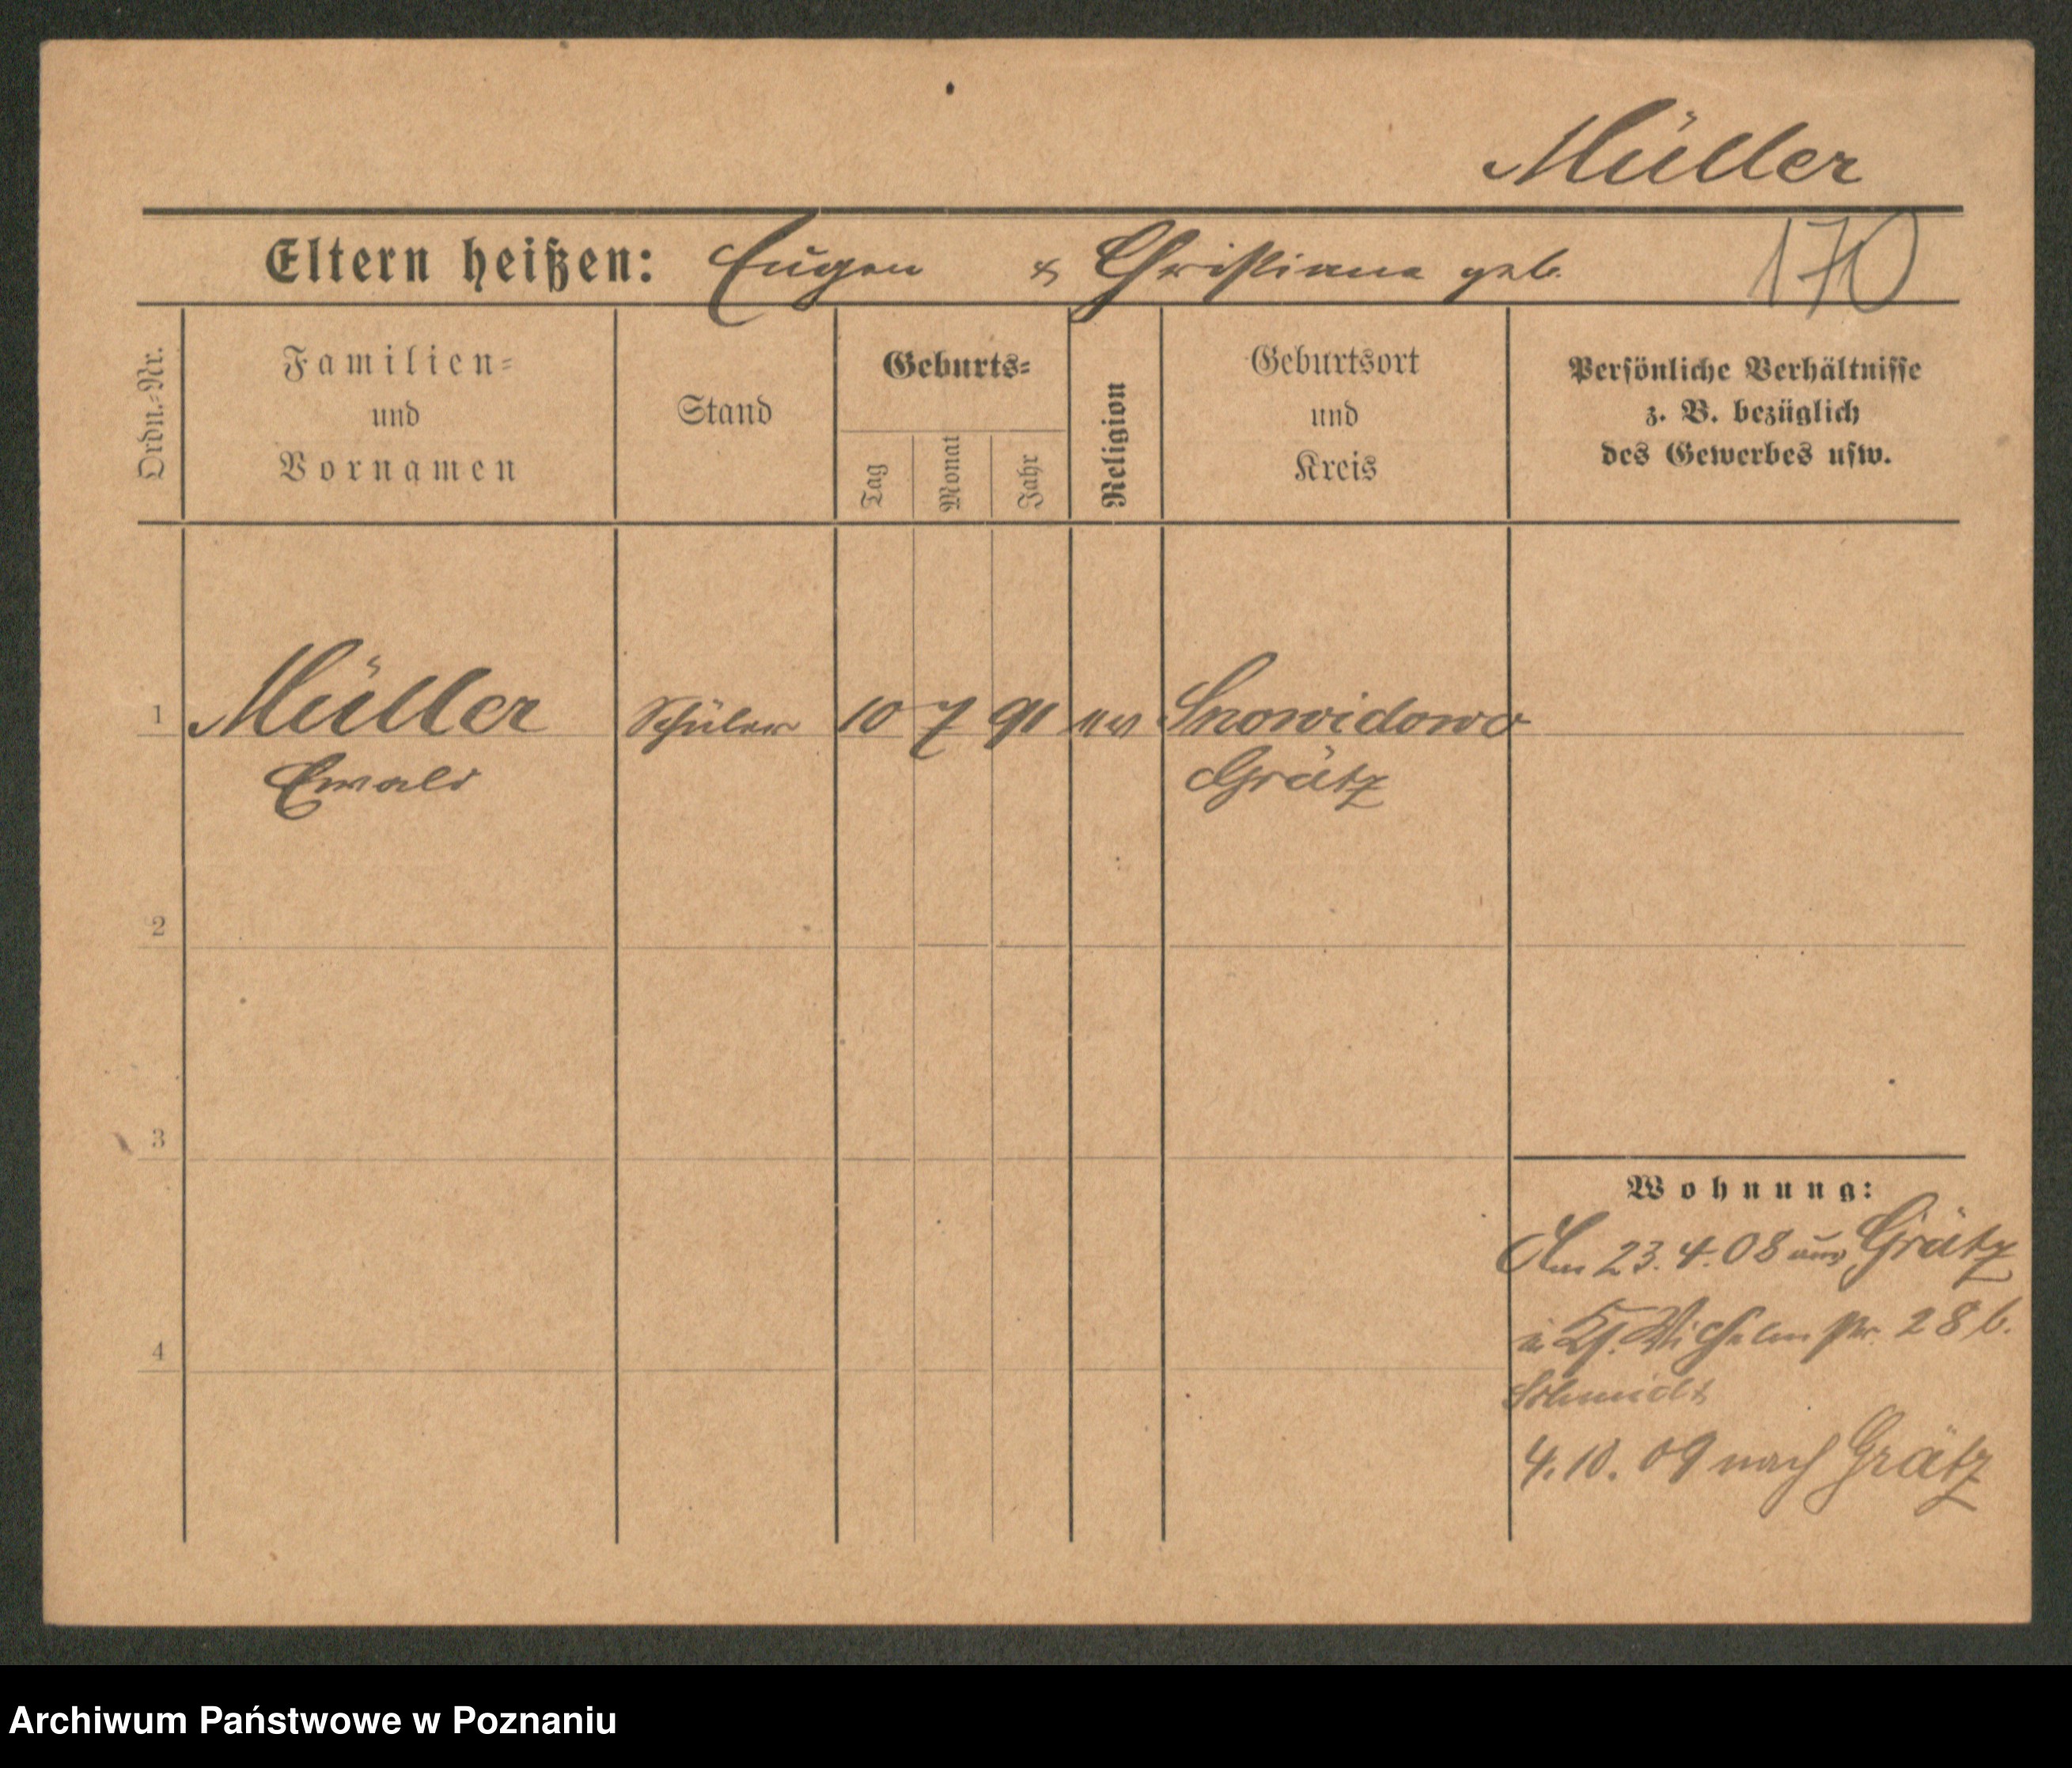 Müller
Eltern heißen: Eugen & Christiana geb.
170
Ordn.-Nr.
Familien-
und
Vornamen
Stand
Geburts-
Tag
Monat
Jahr
Religion
Geburtsort
und
Kreis
Persönliche Verhältnisse
z. B. bezüglich
des Gewerbes usw.
1 Müller Schüler 10 7 91 ev Snowidowo
Ewald Grätz
2
3
4
Wohnung:
Am 23.4.08 aus Grätz
in Wilhelmstr. 28 b.
Schmidt
4.10.09 nach Grätz
Archiwum Państwowe w Poznaniu